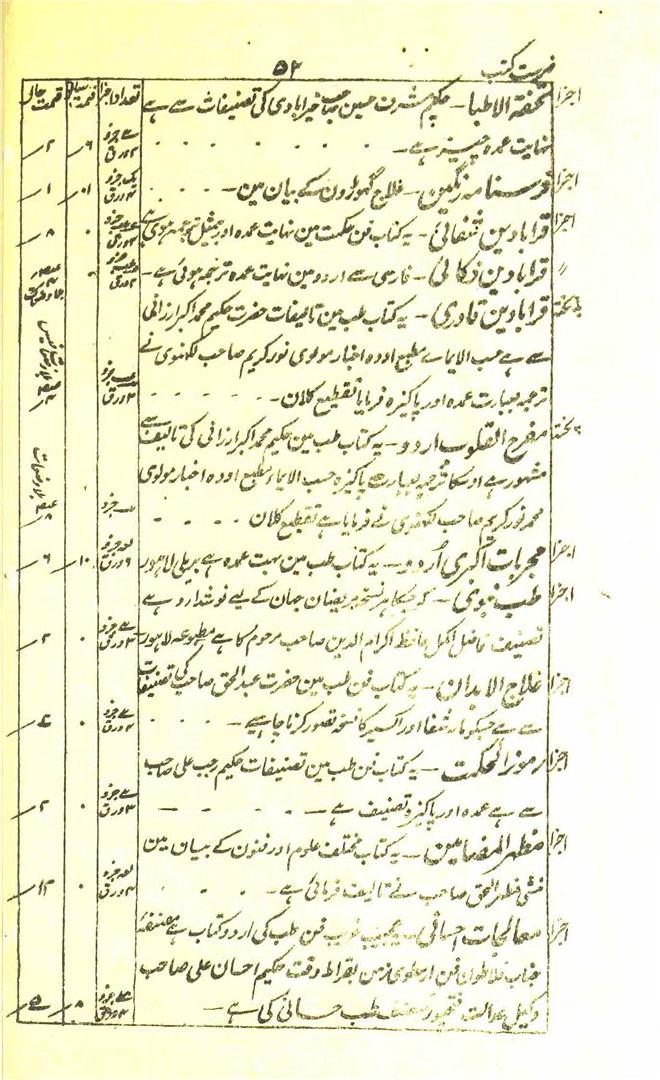 فہرست کتب
۵۲
تعداد اجزا قیمت سابق قیمت حال
اجزا تحفۃ الاطبا ۔ حکیم مشرف حسین صاحب خیرآبادی کی تصنیفات سے ہے
نہایت عمدہ چیز ہے ۔ ۲ ورق ۶؍ ۲؍
اجزا فرسنامہ رنگین ۔ علاج گھوڑون کے بیان مین ۔ یک جزو ۱؍
اجزا قرابادین شفائی ۔ یہ کتاب فن حکمت مین نہایت عمدہ اور بیمثل ترجمہ ہوئی ہے ۸؍
〃 قرابادین ذکائی ۔ فارسی سے اردو مین نہایت عمدہ ترجمہ ہوئی ہے ۔
قرابادین قادری ۔ یہ کتاب طب مین تالیفات حضرت حکیم محمد اکبر ارزانی
سے ہے حسب الایماے مطبع اودہ اخبار مولوی نور کریم صاحب لکھنوی نے
ترجمہ بعبارت عمدہ اور پاکیزہ فرمایا تقطیع کلان ۔
مفرح القلوب اردو ۔ یہ کتاب طب مین حکیم محمد اکبر ارزانی کی تالیف سے
مشہور ہے اوسکا ترجمہ بعبارت پاکیزہ حسب الایماے مطبع اودہ اخبار مولوی
محمد نور کریم صاحب لکھنوی نے فرمایا ہے تقطیع کلان
اجزا مجربات اکبری اردو ۔ یہ کتاب طب مین بہت عمدہ ہے بریلی لاہور ۱۰؍ ۶؍
اجزا طب نبوی ۔ کہ جسکا ہر نسخہ مریضان جہان کے لیے نوشدارو ہے
تصنیف فاضل اکمل حافظ اکرام الدین صاحب مرحوم کا ہے مطبوعہ لاہور ۲؍
اجزا علاج الابدان ۔ یہ کتاب فن طب مین حضرت عبدالحق صاحب کی تصنیفات
سے ہے جسکو مایہ شفا اور اکسیر کا نسخہ تصور کرنا چاہیے ۔
اجزا رموز الحکمت ۔ یہ کتاب فن طب مین تصنیفات حکیم رجب علی صاحب
سے ہے عمدہ اور پاکیزہ تصنیف ہے ۔ ۳ ورق ۲؍
اجزا مظہر المضامین ۔ یہ کتاب مختلف علوم اور فنون کے بیان مین
منشی مظہر الحق صاحب نے تالیف فرمائی ہے ۔ ۱۲؍
اجزا معالجات احسانی ۔ عجیب غریب فن طب کی اردو کتاب ہے مصنفہ
جناب فلاطون فن ارسطوی زمن بقراط وقت حکیم احسان علی صاحب
وکیل عدالت فتحپور مصنف طب احسانی کی ہے ۔ ۸؍